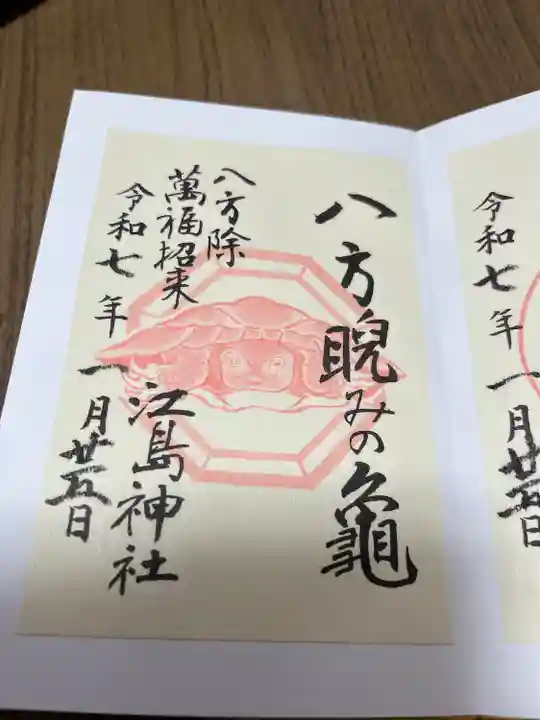 八方睨みの龜
八方除
萬福招来
江島神社
令和七年一月廿五日
令和七年一月廿五日